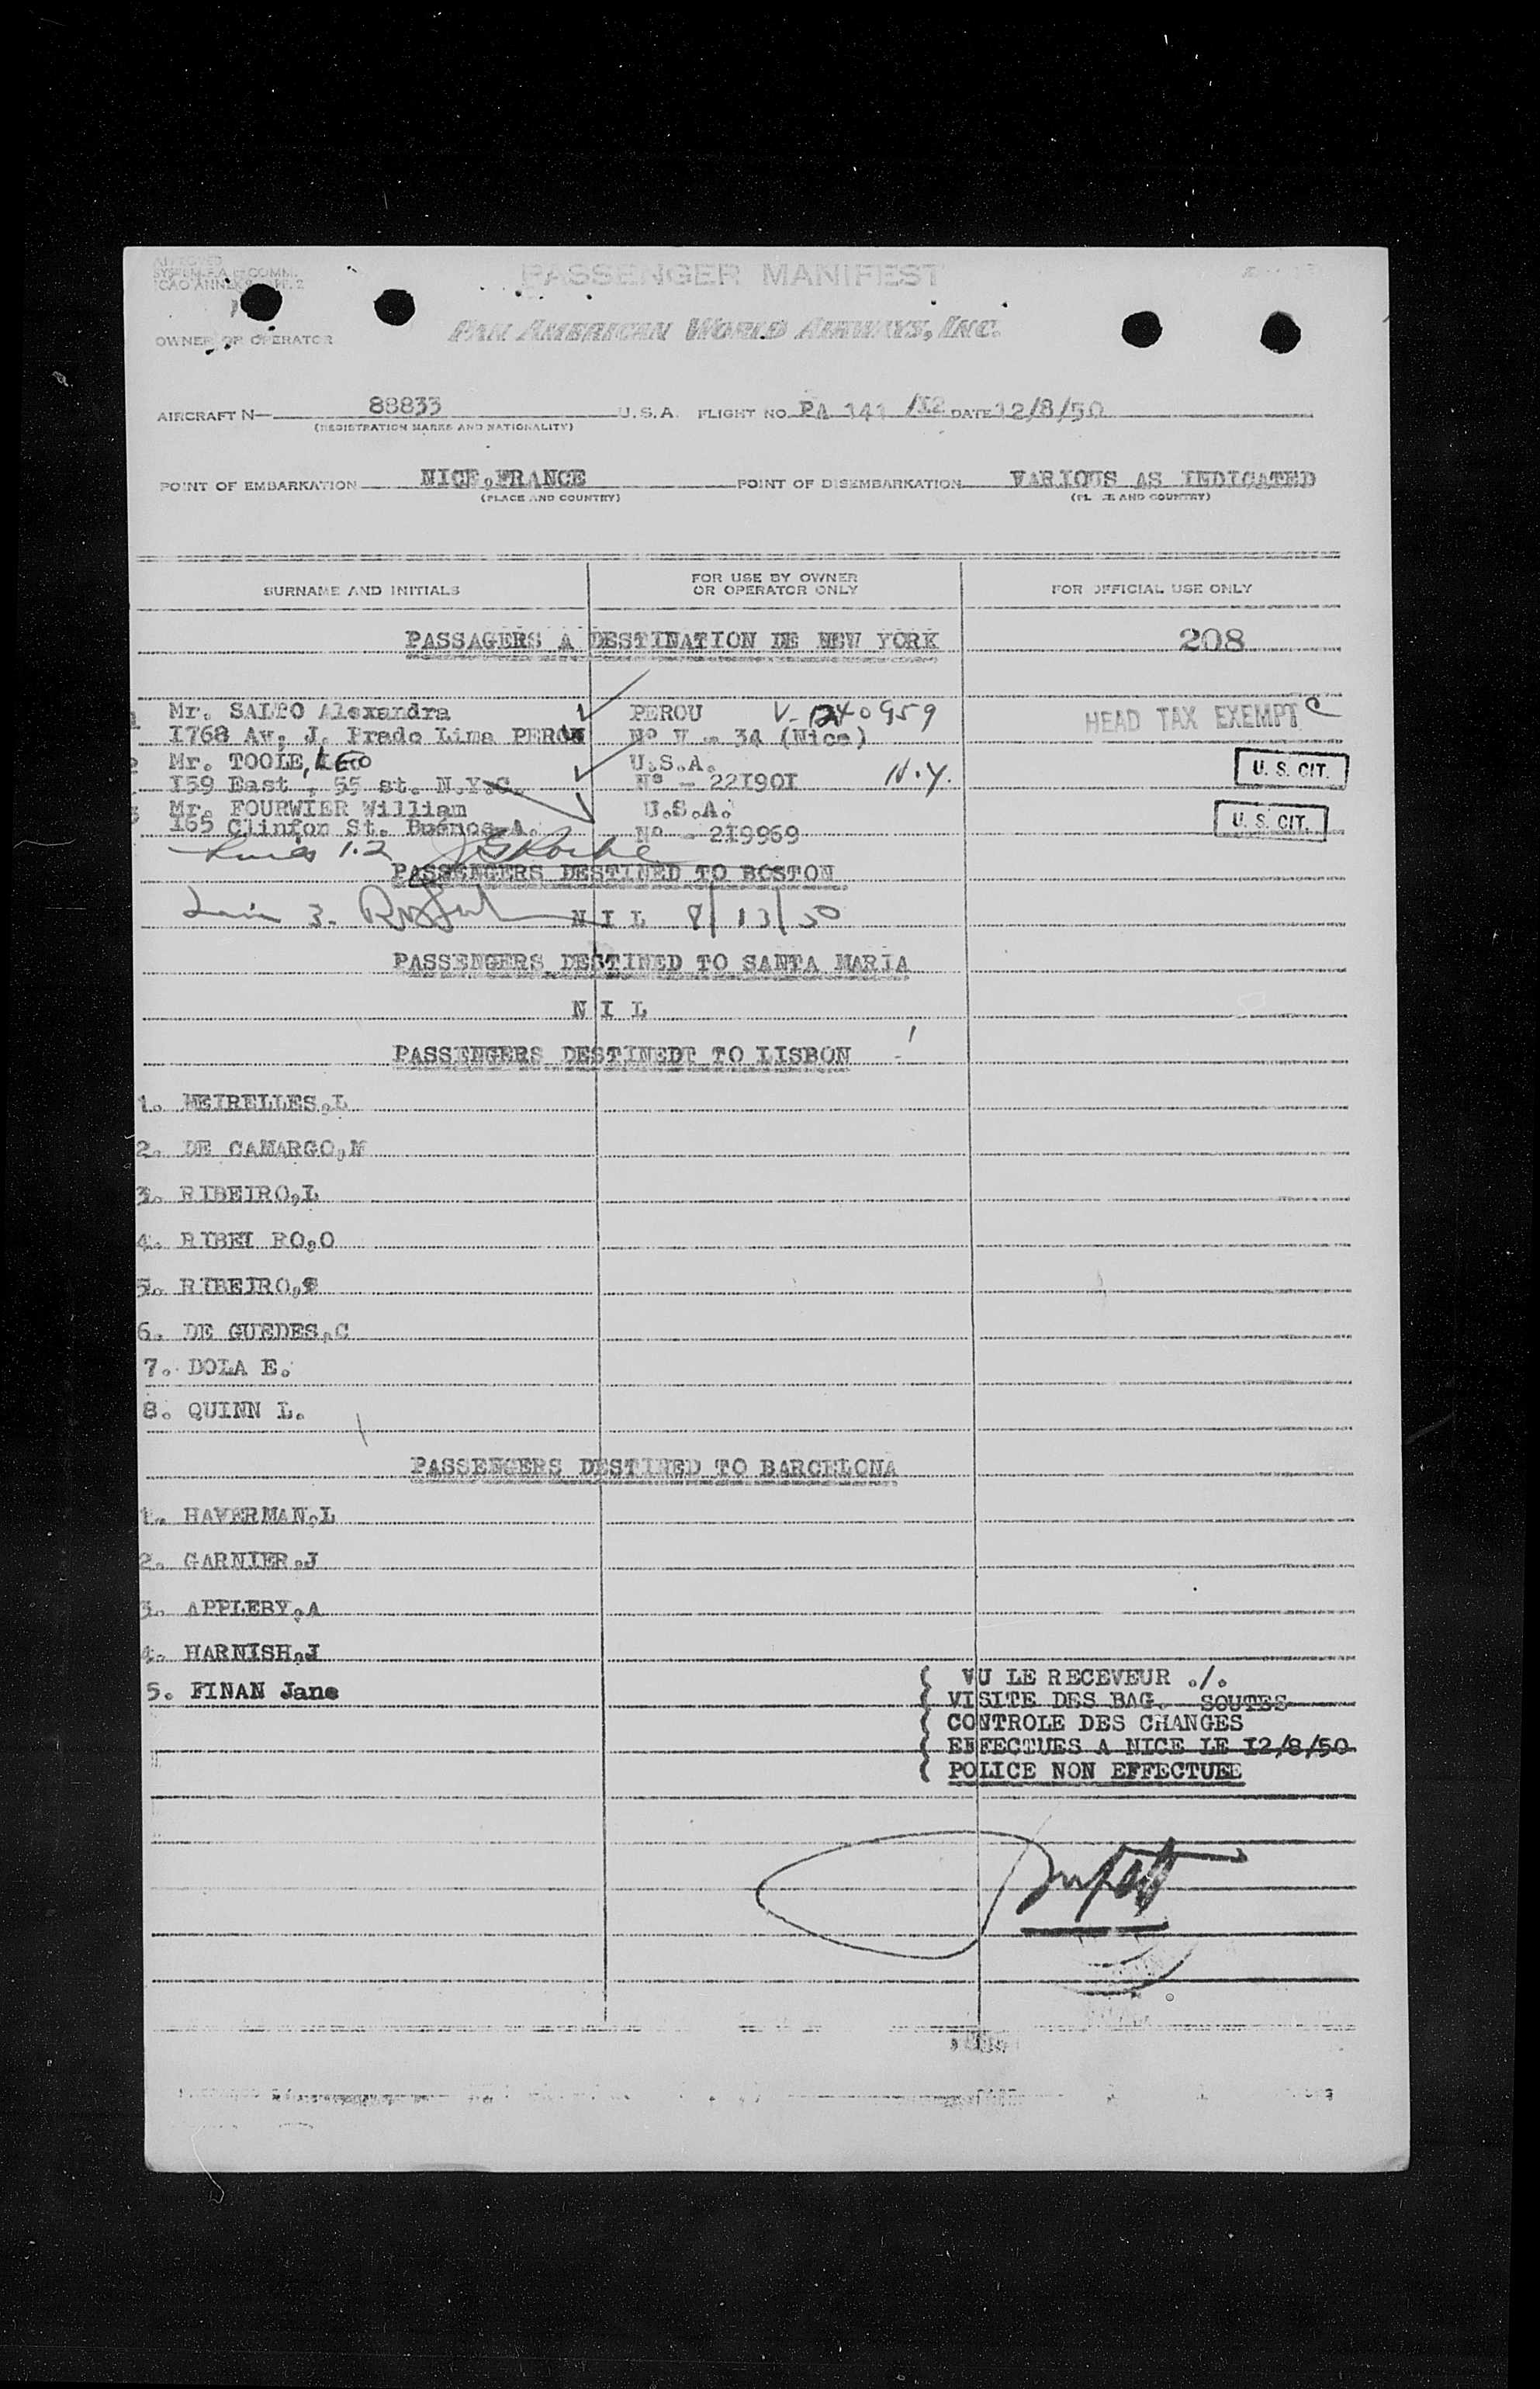 APPROVED
SYSTEM.F.A.L-COMM.
ICAO ANNEX 9 APP. 2
PASSENGER MANIFEST
OWNER OR OPERATOR
PAN AMERICAN WORLD AIRWAYS, INC.
AIRCRAFT N— 88833 U.S.A. FLIGHT NO. PA 141 /12 DATE 12/8/50
(REGISTRATION MARKS AND NATIONALITY)
POINT OF EMBARKATION NICE,FRANCE POINT OF DISEMBARKATION VARIOUS AS INDICATED
(PLACE AND COUNTRY) (PLACE AND COUNTRY)
SURNAME AND INITIALS FOR USE BY OWNER OR OPERATOR ONLY FOR OFFICIAL USE ONLY
PASSAGERS A DESTINATION DE NEW YORK 208
Mr. Alexandra PEROU HEAD TAX EXEMPT C
I768 Av; J. Prado Lima PEROU Nº V - 34 (Nice)
2 Mr. TOOLE, LEO U.S.A. U. S. CIT.
I59 East , 55 st. N.Y.C. Nº - 22I90I N.Y.
3 Mr. FOURWIER William U.S.A. U. S. CIT.
I65 Clinfor St. Buénos-A. Nº - 2I9969
Lines 1.2
PASSENGERS DESTINED TO BOSTON
Line 3. N I L 8/13/50
PASSENGERS DESTINED TO SANTA MARIA
N I L
PASSENGERS DESTINEDT TO LISBON
1. MEIRELLES,L
2. DE CAMARGO,M
3. RIBEIRO,L
4. RIBEI RO,O
5. RIBEIRO,
6. DE GUEDES,C
7. DOLA E.
8. QUINN L.
PASSENGERS DESTINED TO BARCELONA
1. HAVERMAN,L
2. GARNIER,J
3. APPLEBY,A
4. HARNISH,J
5. FINAN Jane
VU LE RECEVEUR ./.
VISITE DES BAG. SOUTES
CONTROLE DES CHANGES
EFFECTUES A NICE LE I2/8/50
POLICE NON EFFECTUEE